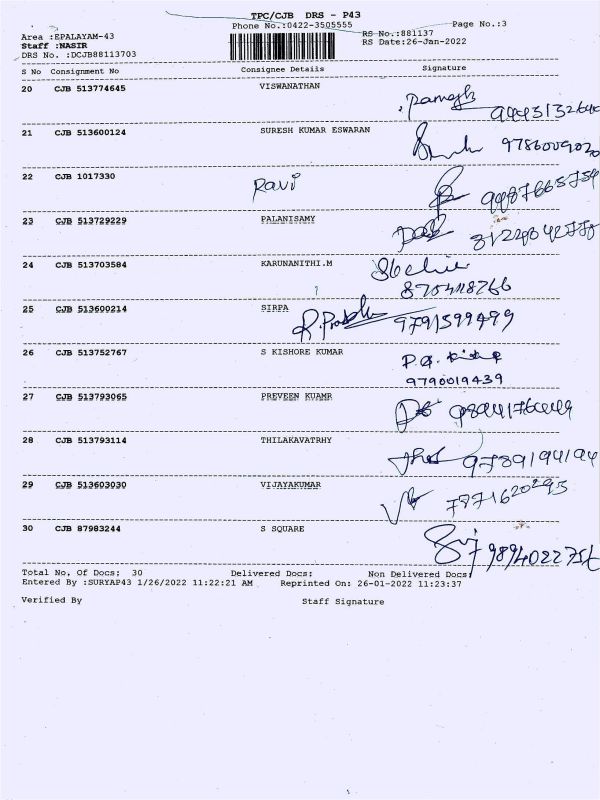 TPC/CJB DRS - P43
Phone No.:0422-3505555
Page No.:3
Area :EPALAYAM-43
RS No.:881137
Staff :NASIR
RS Date:26-Jan-2022
DRS No. :DCJB88113703
S No Consignment No Consignee Details Signature
20 CJB 513774645 VISWANATHAN
21 CJB 513600124 SURESH KUMAR ESWARAN
22 CJB 1017330 Ravi
23 CJB 513729229 PALANISAMY
24 CJB 513703584 KARUNANITHI.M
25 CJB 513600214 SIRPA
9791599499
26 CJB 513752767 S KISHORE KUMAR
9790019439
27 CJB 513793065 PREVEEN KUAMR
28 CJB 513793114 THILAKAVATRHY
9789194194
29 CJB 513603030 VIJAYAKUMAR
7871620295
30 CJB 87983244 S SQUARE
Total No. Of Docs: 30 Delivered Docs: Non Delivered Docs:
Entered By :SURYAP43 1/26/2022 11:22:21 AM Reprinted On: 26-01-2022 11:23:37
Verified By Staff Signature